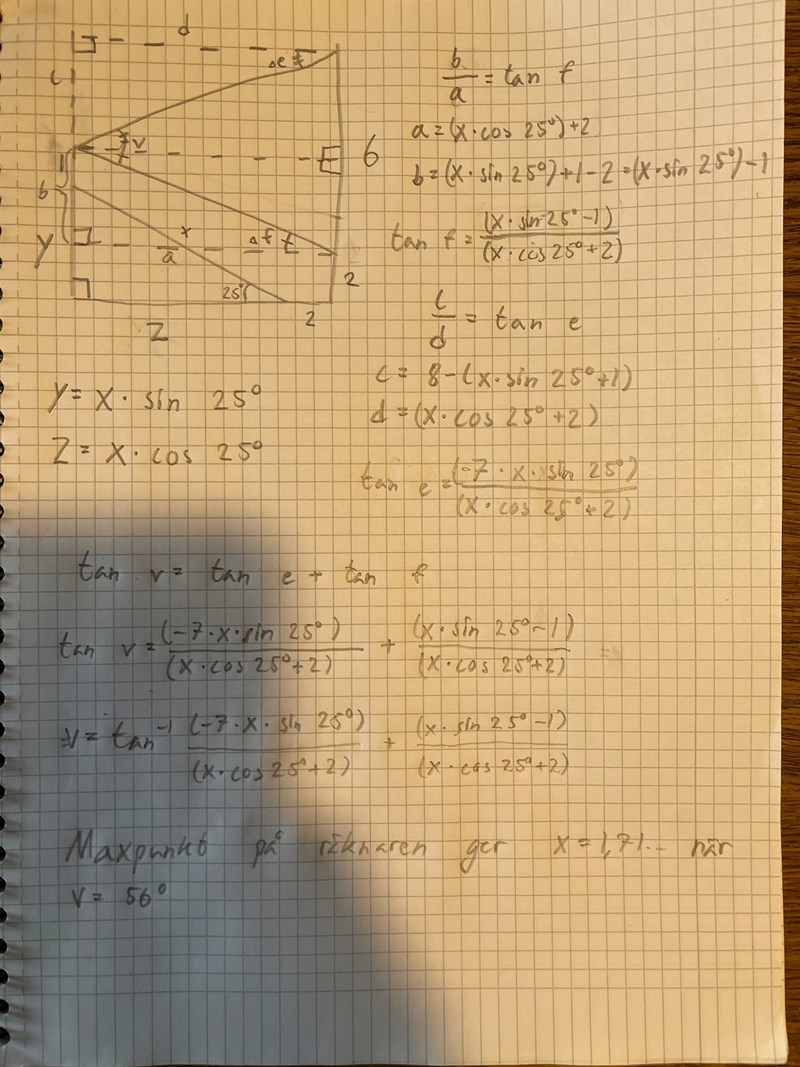 d
c
e
v
6
1
b
y
x
a
f
2
25°
z
2
b/a = tan f
a = (x · cos 25°) + 2
b = (x · sin 25°) + 1 - 2 = (x · sin 25°) - 1
tan f = (x · sin 25° - 1) / (x · cos 25° + 2)
c/d = tan e
c = 8 - (x · sin 25° + 1)
d = (x · cos 25° + 2)
tan e = (-7 · x · sin 25°) / (x · cos 25° + 2)
y = x · sin 25°
z = x · cos 25°
tan v = tan e + tan f
tan v = (-7 · x · sin 25°) / (x · cos 25° + 2) + (x · sin 25° - 1) / (x · cos 25° + 2)
v = tan⁻¹ (-7 · x · sin 25°) / (x · cos 25° + 2) + (x · sin 25° - 1) / (x · cos 25° + 2)
Maxpunkt på räknaren ger x = 1,71.. när
v = 56°